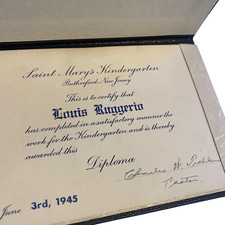 Saint Mary's Kindergarten
Rutherford, New Jersey
This is to certify that
Louis Ruggerio
has completed in a satisfactory manner the
work for the Kindergarten and is hereby
awarded this
Diploma
June 3rd, 1945
Charles W.
Pastor